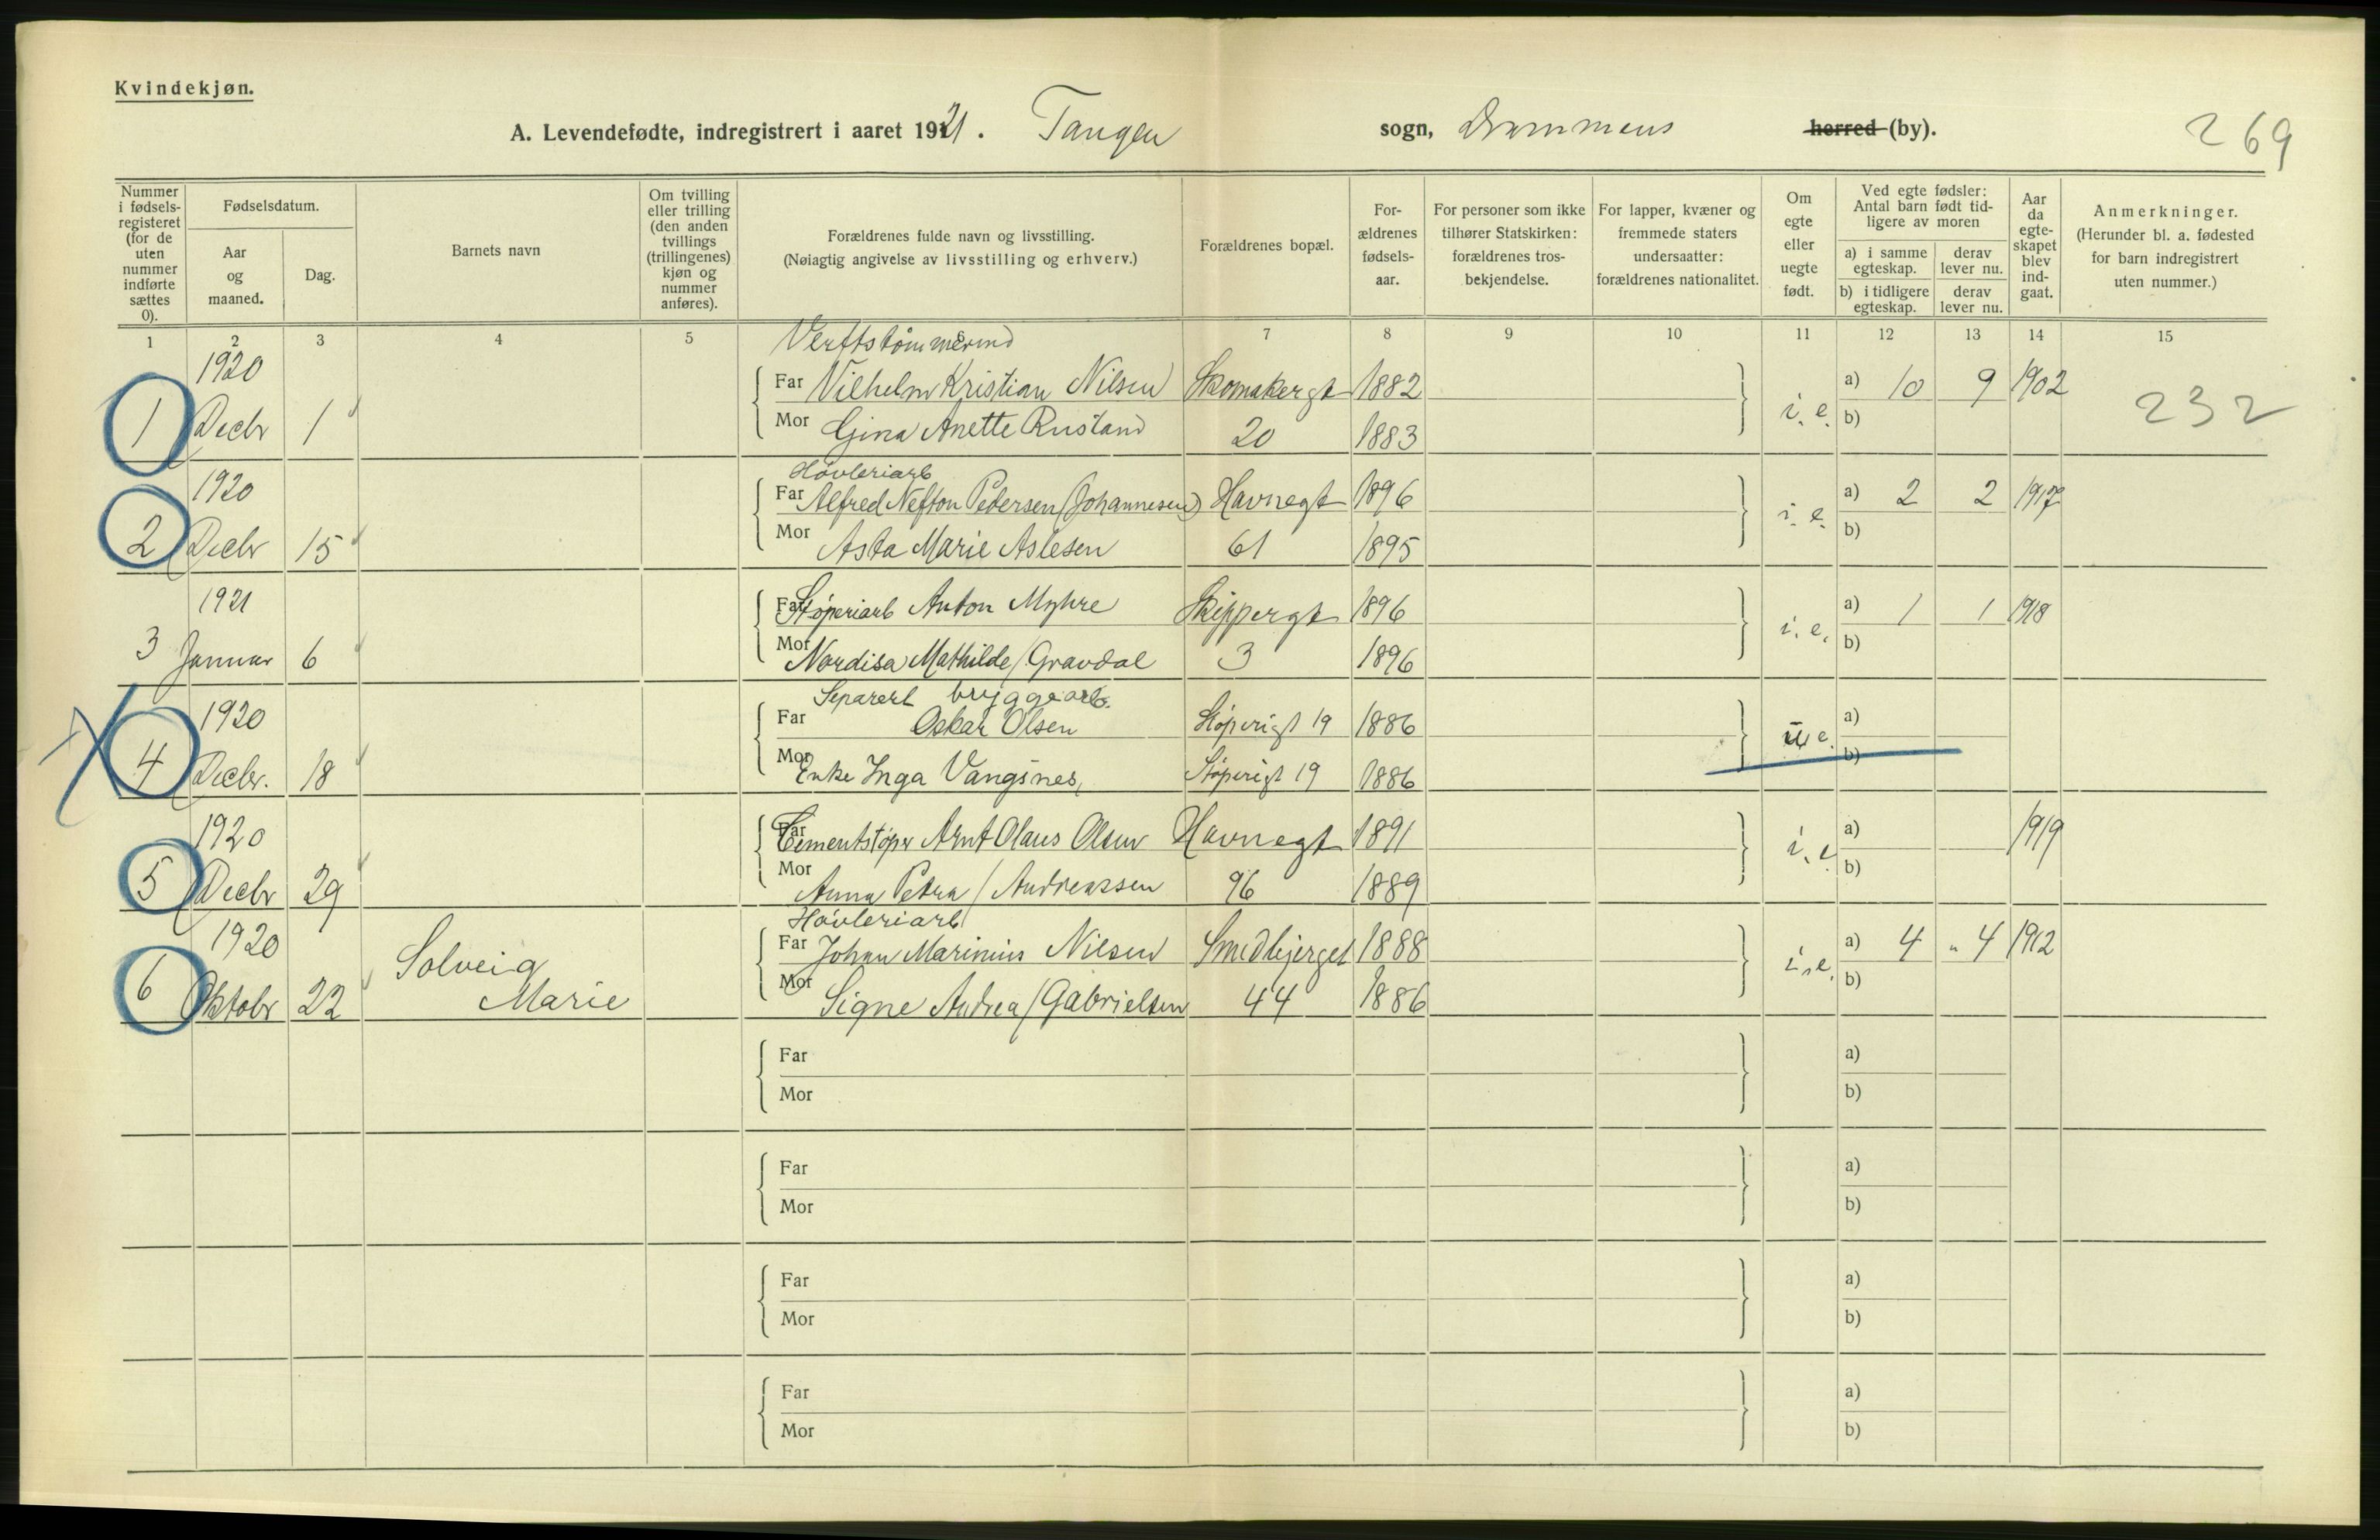 Kvindekjøn.
A. Levendefødte, indregistrert i aaret 1921. Tangen sogn, Drammens herred (by). 269
Nummer i fødsels-registeret (for de uten nummer indførte sættes 0).
Fødselsdatum.
Aar og maaned.
Dag.
Barnets navn
Om tvilling eller trilling (den anden tvillings (trillingenes) kjøn og nummer anføres).
Forældrenes fulde navn og livsstilling.
(Nøiagtig angivelse av livsstilling og erhverv.)
Forældrenes bopæl.
For-ældrenes fødsels-aar.
For personer som ikke tilhører Statskirken: forældrenes tros-bekjendelse.
For lapper, kvæner og fremmede staters undersaatter: forældrenes nationalitet.
Om egte eller uegte født.
Ved egte fødsler: Antal barn født tid-ligere av moren
a) i samme egteskap.
derav lever nu.
b) i tidligere egteskap.
derav lever nu.
Aar da egte-skapet blev ind-gaat.
Anmerkninger.
(Herunder bl. a. fødested for barn indregistrert uten nummer.)
1 2 3 4 5 7 8 9 10 11 12 13 14 15
Verftstømmermd
1920 Far Vilhelm Kristian Nilsen Skomakergt 1882 a) 10 9 1902
1 Decbr 1 Mor Gina Anette Rustand 20 1883 i. e. b) 232
Høvleriarb
1920 Far Alfred Nefton Pedersen (Johannesen) Havnegt 1896 a) 2 2 1917
2 Decbr 15 Mor Asta Marie Aslesen 61 1895 i. e. b)
1921 Far Støperiarb Anton Myhre Skippergt 1896 a) 1 1 1918
3 Januar 6 Mor Nordisa Mathilde / Gravdal 3 1896 i. e. b)
Separert bryggearb.
1920 Far Oskar Olsen Støperigt 19 1886 a)
4 Decbr. 18 Mor Enke Inga Vangsnes, Støperigt 19 1886 u e. b)
1920 Far Cementstøper Arnt Olaus Olsen Havnegt 1891 a) 1919
5 Decbr 29 Mor Anna Petra / Andreassen 96 1889 i. e b)
Høvleriarb
1920 Far Johan Marinius Nilsen Smedbjerget 1888 a) 4 " 4 1912
6 Oktobr 22 Solveig Marie Mor Signe Andrea / Gabrielsen 44 1886 i. e. b)
Far a)
Mor b)
Far a)
Mor b)
Far a)
Mor b)
Far a)
Mor b)